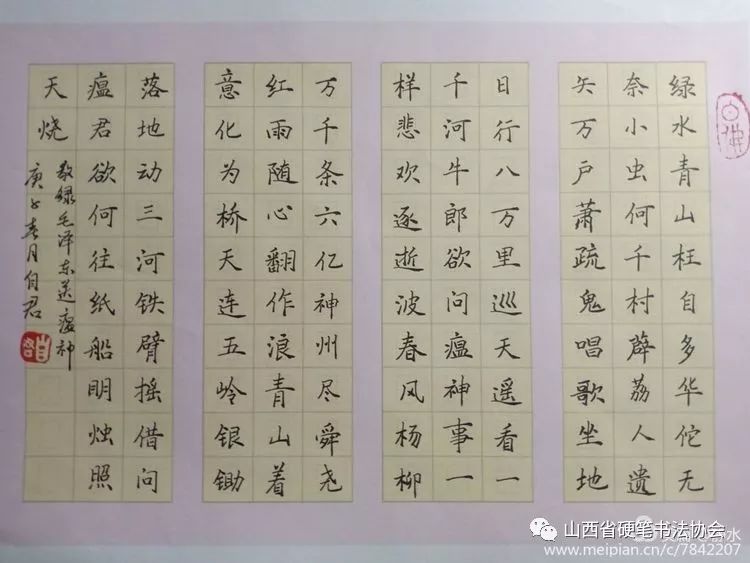 绿水青山枉自多华佗无
奈小虫何千村薜荔人遗
矢万户萧疏鬼唱歌坐地
日行八万里巡天遥看一
千河牛郎欲问瘟神事一
样悲欢逐逝波春风杨柳
万千条六亿神州尽舜尧
红雨随心翻作浪青山着
意化为桥天连五岭银锄
落地动三河铁臂摇借问
瘟君欲何往纸船明烛照
天烧
敬录毛泽东送瘟神
庚子春月自君
山西省硬笔书法协会
www.meipian.cn/c/7842207